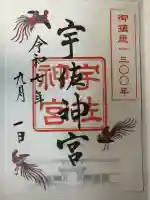 御鎮座一三〇〇年
宇佐神宮
宇佐
神宮
令和七年
九月
一日